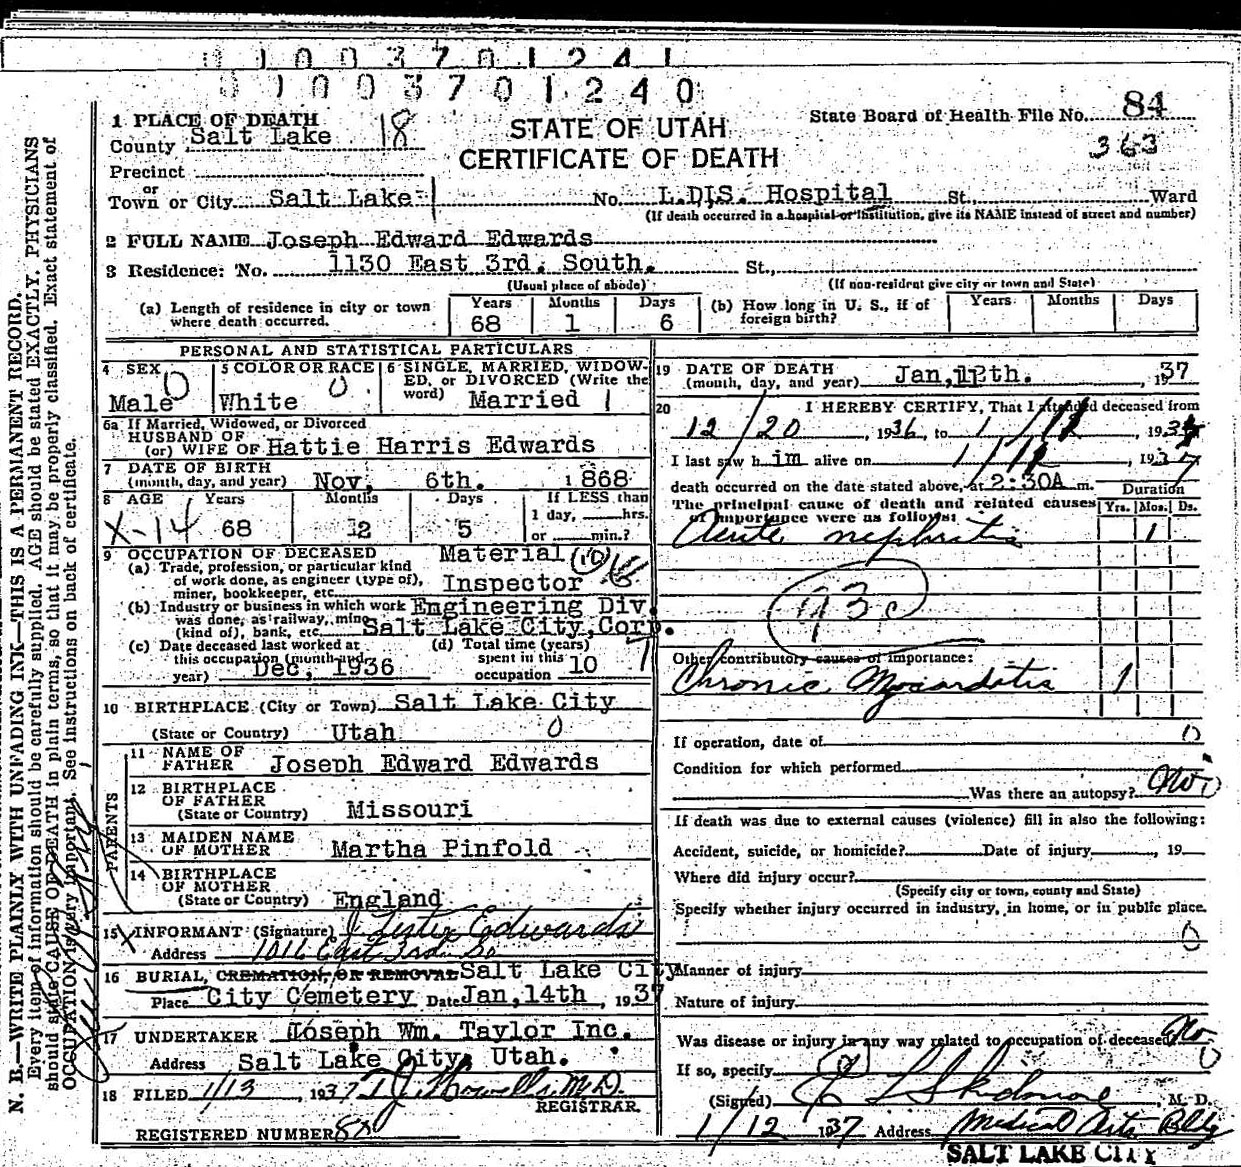 1003701241
01003701240
1 PLACE OF DEATH
County Salt Lake 18
STATE OF UTAH
CERTIFICATE OF DEATH
State Board of Health File No. 84
363
Precinct
or
Town or City Salt Lake No. L.D.S. Hospital St., Ward
(If death occurred in a hospital or institution, give its NAME instead of street and number)
2 FULL NAME Joseph Edward Edwards
3 Residence: No. 1130 East 3rd. South. St.,
(Usual place of abode) (If non-resident give city or town and State)
(a) Length of residence in city or town where death occurred. Years 68 Months 1 Days 6
(b) How long in U. S., if of foreign birth? Years Months Days
PERSONAL AND STATISTICAL PARTICULARS
4 SEX Male
5 COLOR OR RACE White
6 SINGLE, MARRIED, WIDOWED, or DIVORCED (Write the word) Married
6a If Married, Widowed, or Divorced
HUSBAND OF
(or) WIFE OF Hattie Harris Edwards
7 DATE OF BIRTH
(month, day, and year) Nov. 6th. 1868
8 AGE Years Months Days If LESS than
X-14 68 2 5 1 day, hrs.
or min.?
9 OCCUPATION OF DECEASED
(a) Trade, profession, or particular kind of work done, as engineer (type of), miner, bookkeeper, etc. Material Inspector
(b) Industry or business in which work was done, as railway, mine (kind of), bank, etc. Engineering Div. Salt Lake City, Corp.
(c) Date deceased last worked at this occupation (month and year) Dec, 1936
(d) Total time (years) spent in this occupation 10
10 BIRTHPLACE (City or Town) Salt Lake City
(State or Country) Utah
PARENTS
11 NAME OF FATHER Joseph Edward Edwards
12 BIRTHPLACE OF FATHER
(State or Country) Missouri
13 MAIDEN NAME OF MOTHER Martha Pinfold
14 BIRTHPLACE OF MOTHER
(State or Country) England
15 INFORMANT (Signature) J Lester Edwards
Address 1016 East 3rd So
16 BURIAL, CREMATION, OR REMOVAL Salt Lake City
Place City Cemetery Date Jan, 14th, 1937
17 UNDERTAKER Joseph Wm. Taylor Inc.
Address Salt Lake City, Utah.
18 FILED 1/13, 1937 T J Howells M.D.
REGISTRAR.
REGISTERED NUMBER 80
19 DATE OF DEATH
(month, day, and year) Jan, 12th. 1937
20 I HEREBY CERTIFY, That I attended deceased from
12/20, 1936, to 1/12, 1937
I last saw him alive on 1/12, 1937
death occurred on the date stated above, at 2:30A m.
The principal cause of death and related causes of importance were as follows: Duration Yrs. Mos. Ds.
Acute nephritis 1
93c
Other contributory causes of importance:
Chronic Myocarditis 1
If operation, date of 0
Condition for which performed
Was there an autopsy? No
If death was due to external causes (violence) fill in also the following:
Accident, suicide, or homicide? Date of injury, 19
Where did injury occur?
(Specify city or town, county and State)
Specify whether injury occurred in industry, in home, or in public place.
0
Manner of injury
Nature of injury
Was disease or injury in any way related to occupation of deceased? No
If so, specify
(Signed) M. D.
1/12 1937 Address Medical Arts Bldg
SALT LAKE CITY
N. B.—WRITE PLAINLY WITH UNFADING INK—THIS IS A PERMANENT RECORD.
Every item of information should be carefully supplied. AGE should be stated EXACTLY. PHYSICIANS
should state CAUSE OF DEATH in plain terms, so that it may be properly classified. Exact statement of
OCCUPATION is very important. See instructions on back of certificate.